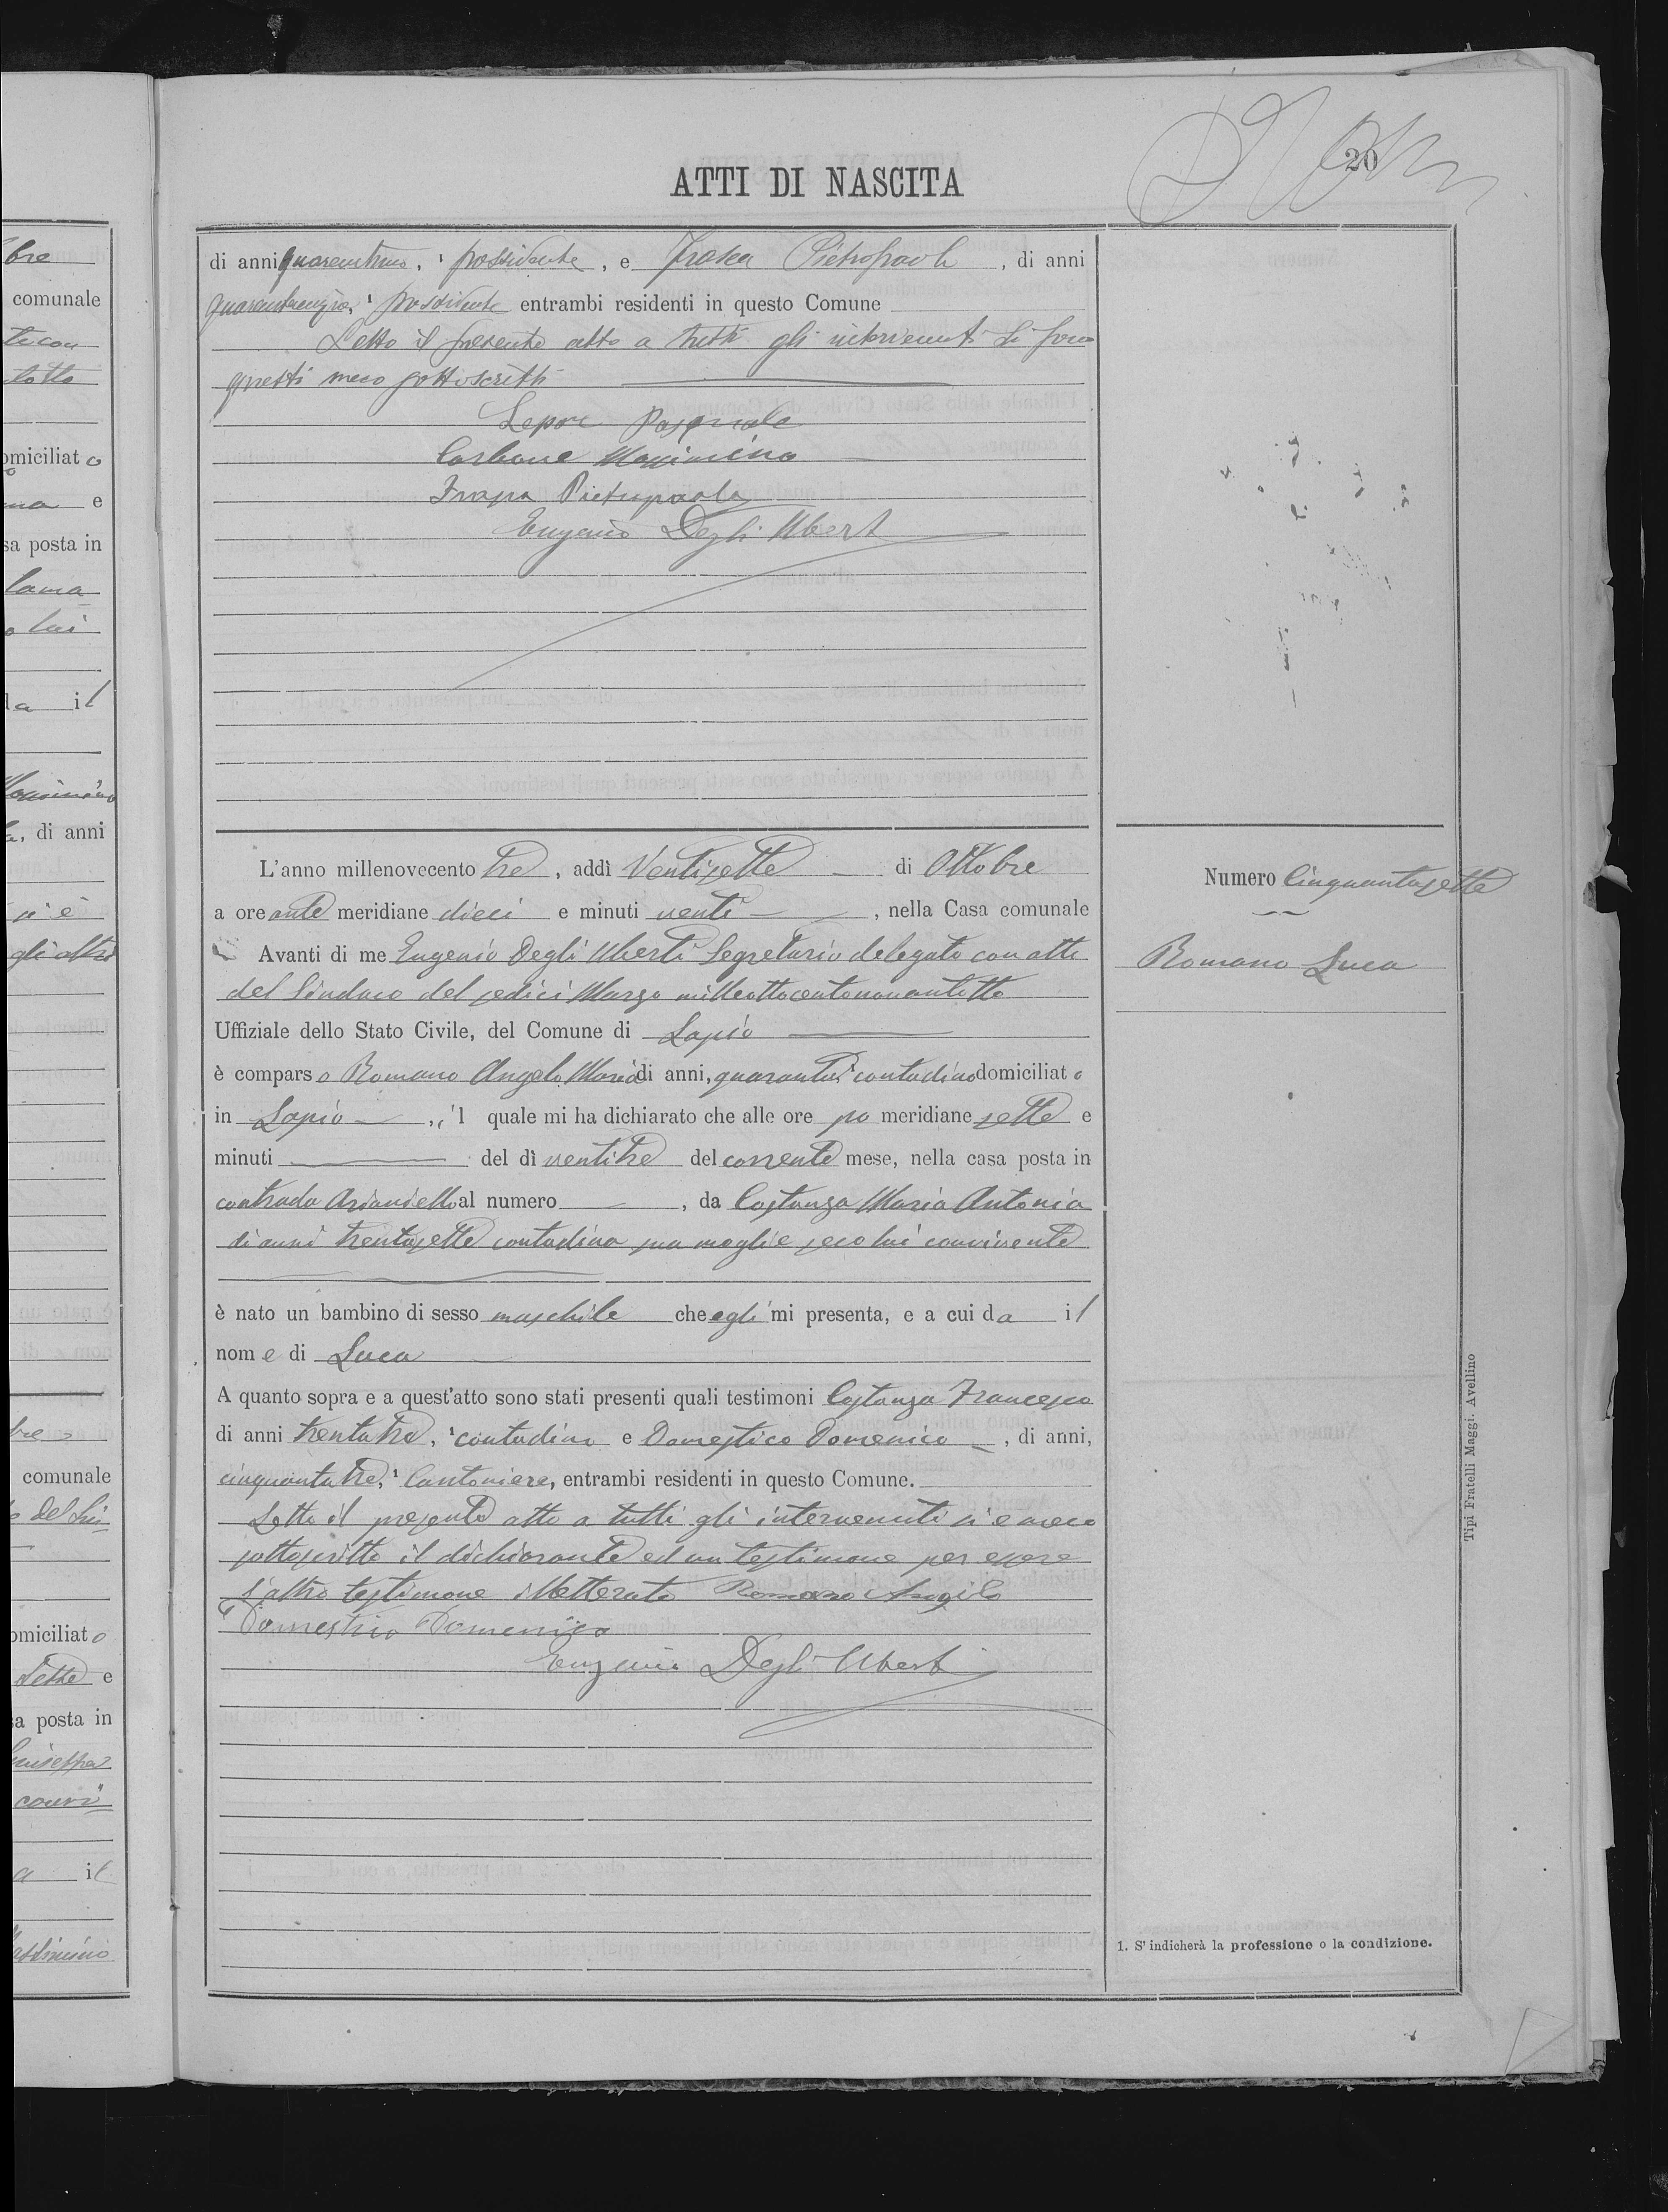 bre
comunale
tecon
totto
omiciliato
e
sa posta in
lama
o lui
la il
di anni
si è
gli altri
bre
comunale
del Sin-
omiciliato
sette e
sa posta in
Giuseppa
convi-
a il
20
ATTI DI NASCITA
di anni quarantuno, ¹ possidente, e Frasca Pietropaolo, di anni
¹ possidente entrambi residenti in questo Comune
Letto il presente atto a tutti gli intervenuti si sono
questi meco sottoscritti
Lepore Pasquale
Carbone Massimino
Pietropaolo
Eugenio Degli Uberti
L'anno millenovecento tre, addì Ventisette di Ottobre
a ore ante meridiane dieci e minuti venti, nella Casa comunale
Avanti di me Eugenio Degli Uberti Segretario delegato con atto
del Sindaco del sedici Marzo milleottocentonovantotto
Uffiziale dello Stato Civile, del Comune di Lapio
è comparso Romano Angelo Maria di anni, quaranta, ¹ contadino domiciliato
in Lapio, il quale mi ha dichiarato che alle ore po meridiane sette e
minuti del dì ventitre del corrente mese, nella casa posta in
contrada Arianiello al numero , da Costanza Maria Antonia
di anni trentasette contadina sua moglie seco lui convivente
è nato un bambino di sesso maschile che egli mi presenta, e a cui da il
nome di Luca
A quanto sopra e a quest'atto sono stati presenti quali testimoni Costanza Francesco
di anni trentatre, ¹ contadino e Domestico Domenico, di anni,
cinquantatre, ¹ Cantoniere, entrambi residenti in questo Comune.
Letto il presente atto a tutti gli intervenuti si è meco
sottoscritto il dichiarante ed un testimone per essere
l'altro testimone illetterato Romano Angilo
Domestico Domenico
Eugenio Degli Uberti
Numero Cinquantasette
Romano Luca
1. S'indicherà la professione o la condizione.
Tipi Fratelli Maggi. Avellino